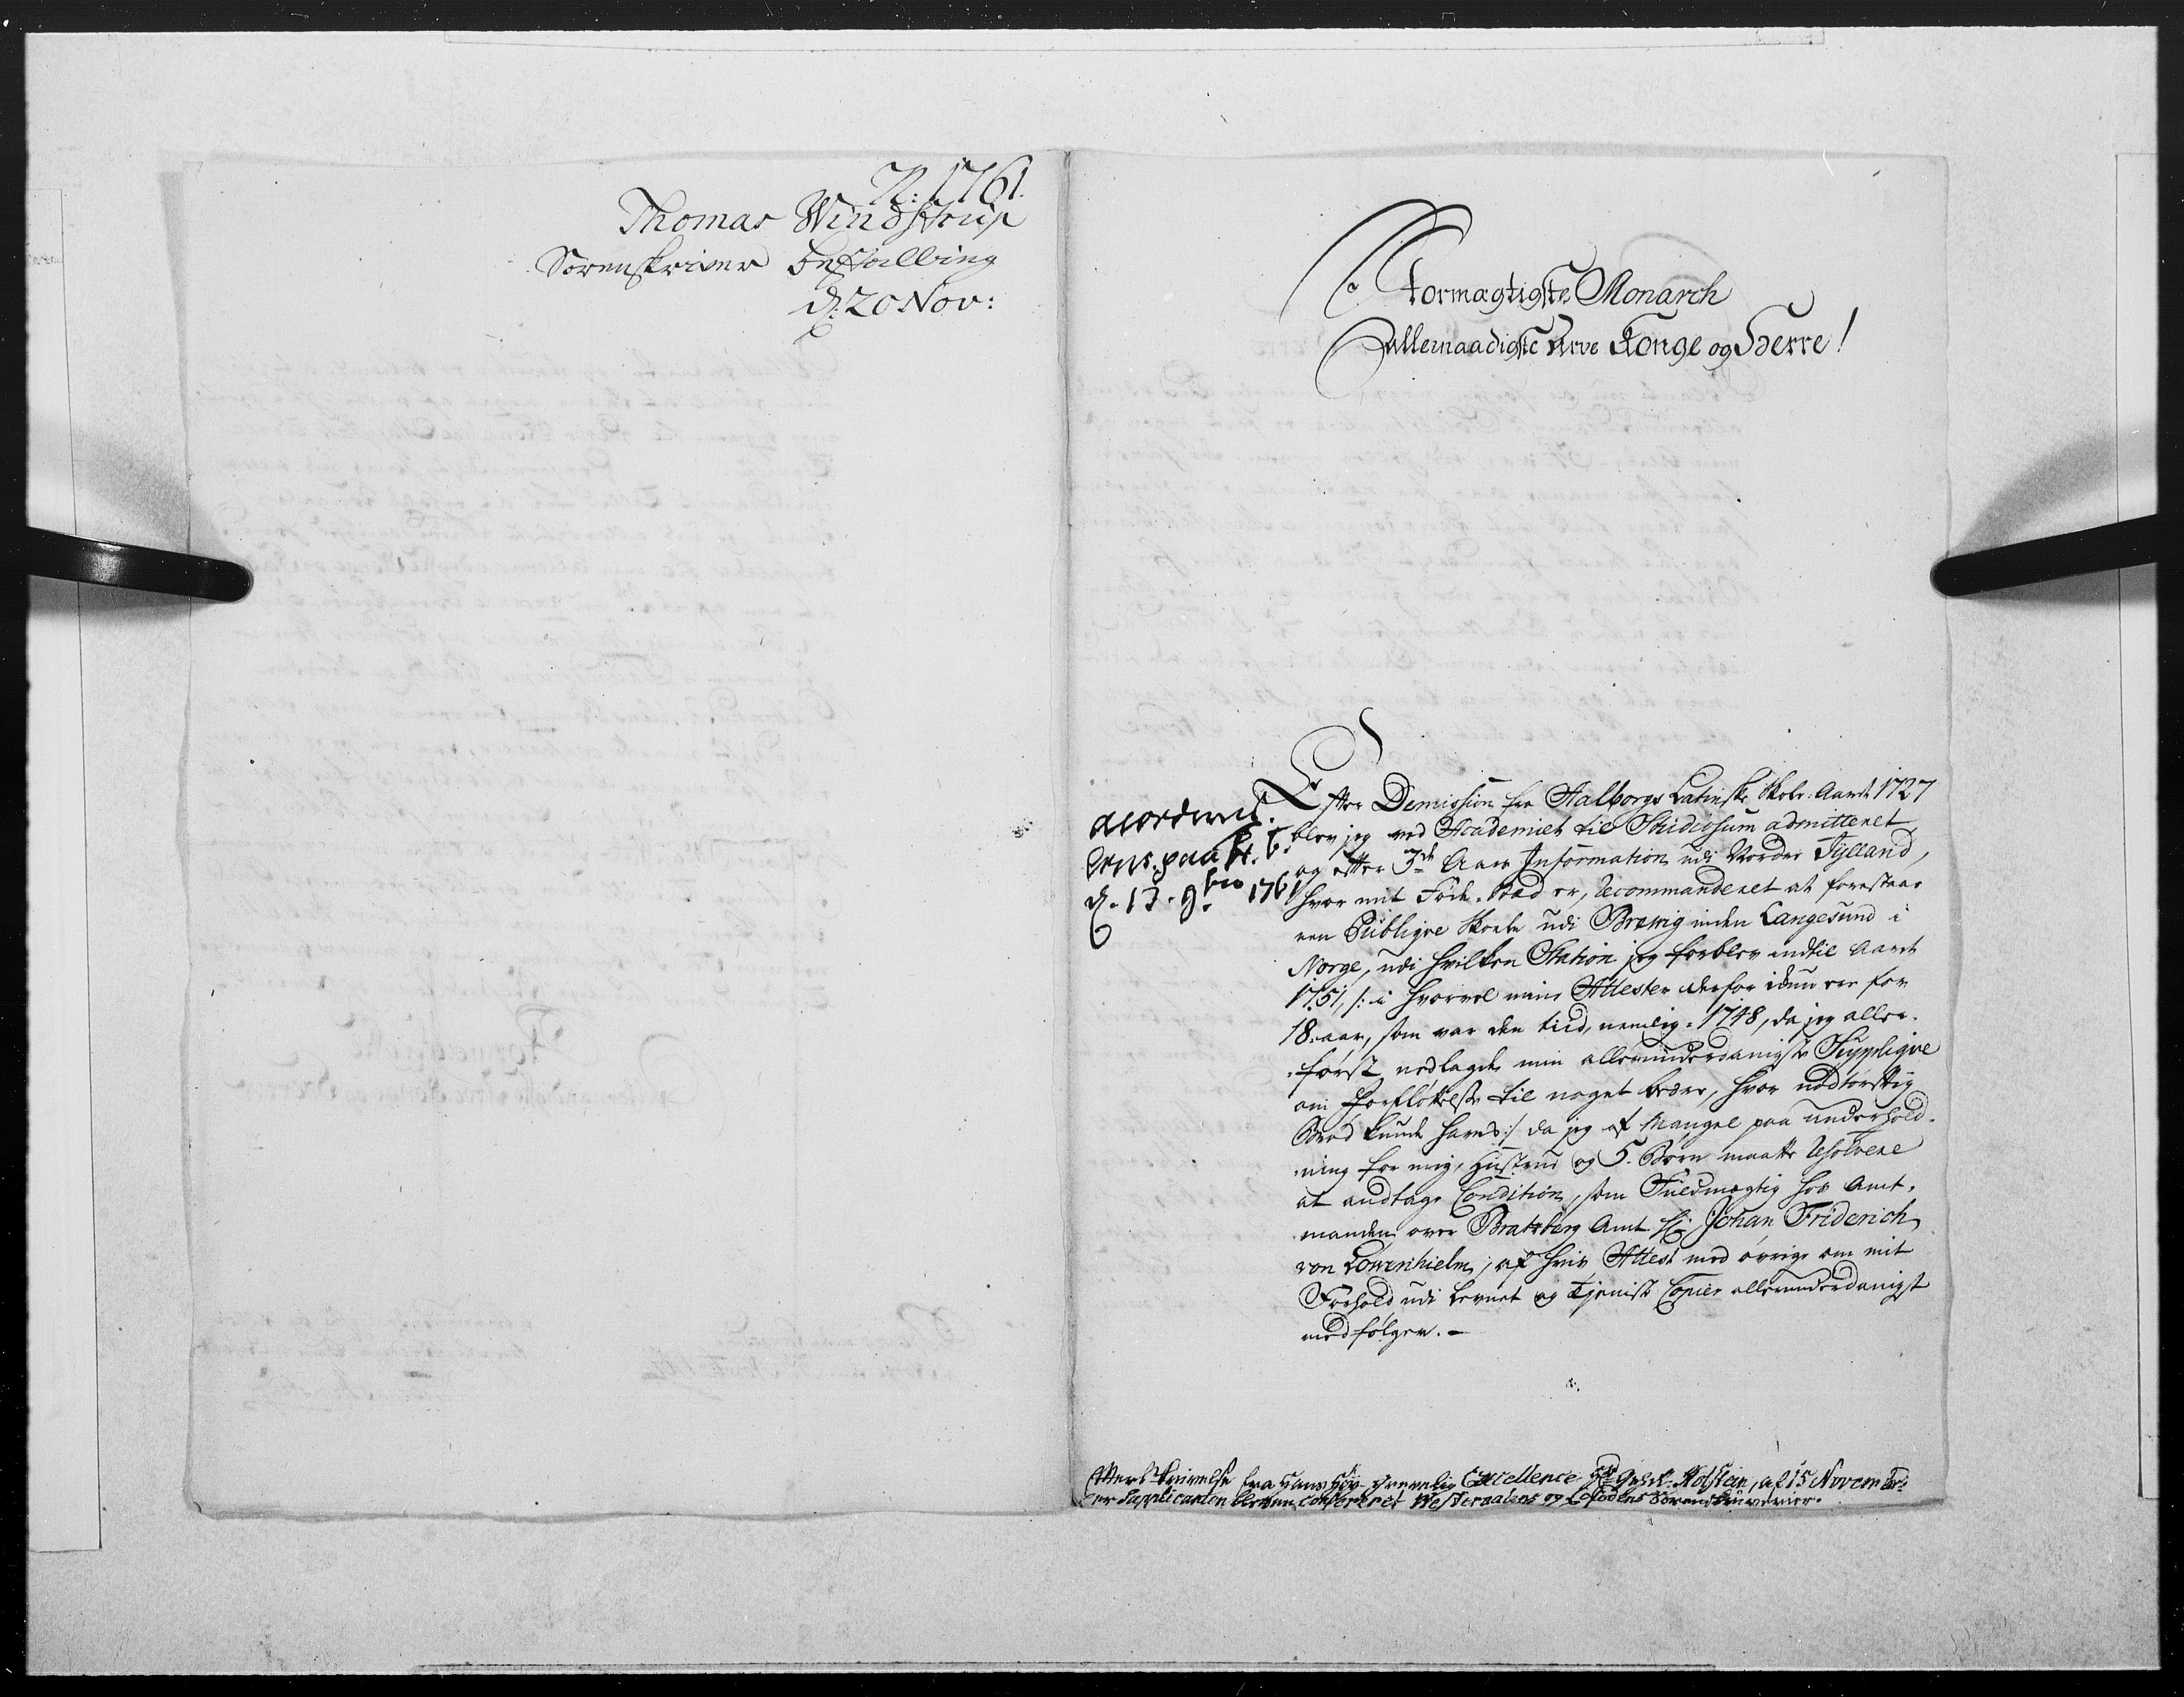 N: 1761.
Thomas Windstrup
Sorenskriver bestalling
d: 20 Nov:
Stormægtigste Monarch
Allernaadigste Arve Konge og Herre!
accorderet.
Chrs.paa
d. 13. 9bro 1761
Efter Demission fra Aalborgs Latinske Skole Aaret 1727
blev jeg ved Academiet til Studiosum admitteret
og efter 3de Aars Information udi Norder Jylland,
hvor mit Føde-Stæd er, recommanderet at forestaae
een Publiqve Skoele udi Brewig inden Langesund i
Norge, udi hvilken Station jeg forblev indtil Aaret
1751, /: i hvorvel mine Attester derfor er for
18. aar, som var den tiid, nemlig 1748, da jeg aller-
først nedlagde min allerunderdanigste Supplique
om forfløttelse til noget bedre, hvor nødtørftig
Brød kunde haves :/ da jeg af Mangel paa underhold-
ning for mig, Hustrue og 5. Børn maatte resolvere
at andtage Condition, som Fuldmægtig hos Amt-
manden over Bratsberg Amt Hr: Johan Friderich
von Lowenhielm, af hvis Attest med øvrige om mit
Forhold udi Levnet og Tjeniste Copier allerunderdanigst
medfølger. -
Efter Skrivelse fra Hans Høy Grevelig Excellence Hr Geh: Holstein, af 15 Novembr:
er Supplicanten bleven confereret Westeraalens og Lofodens Sorenskriverier.